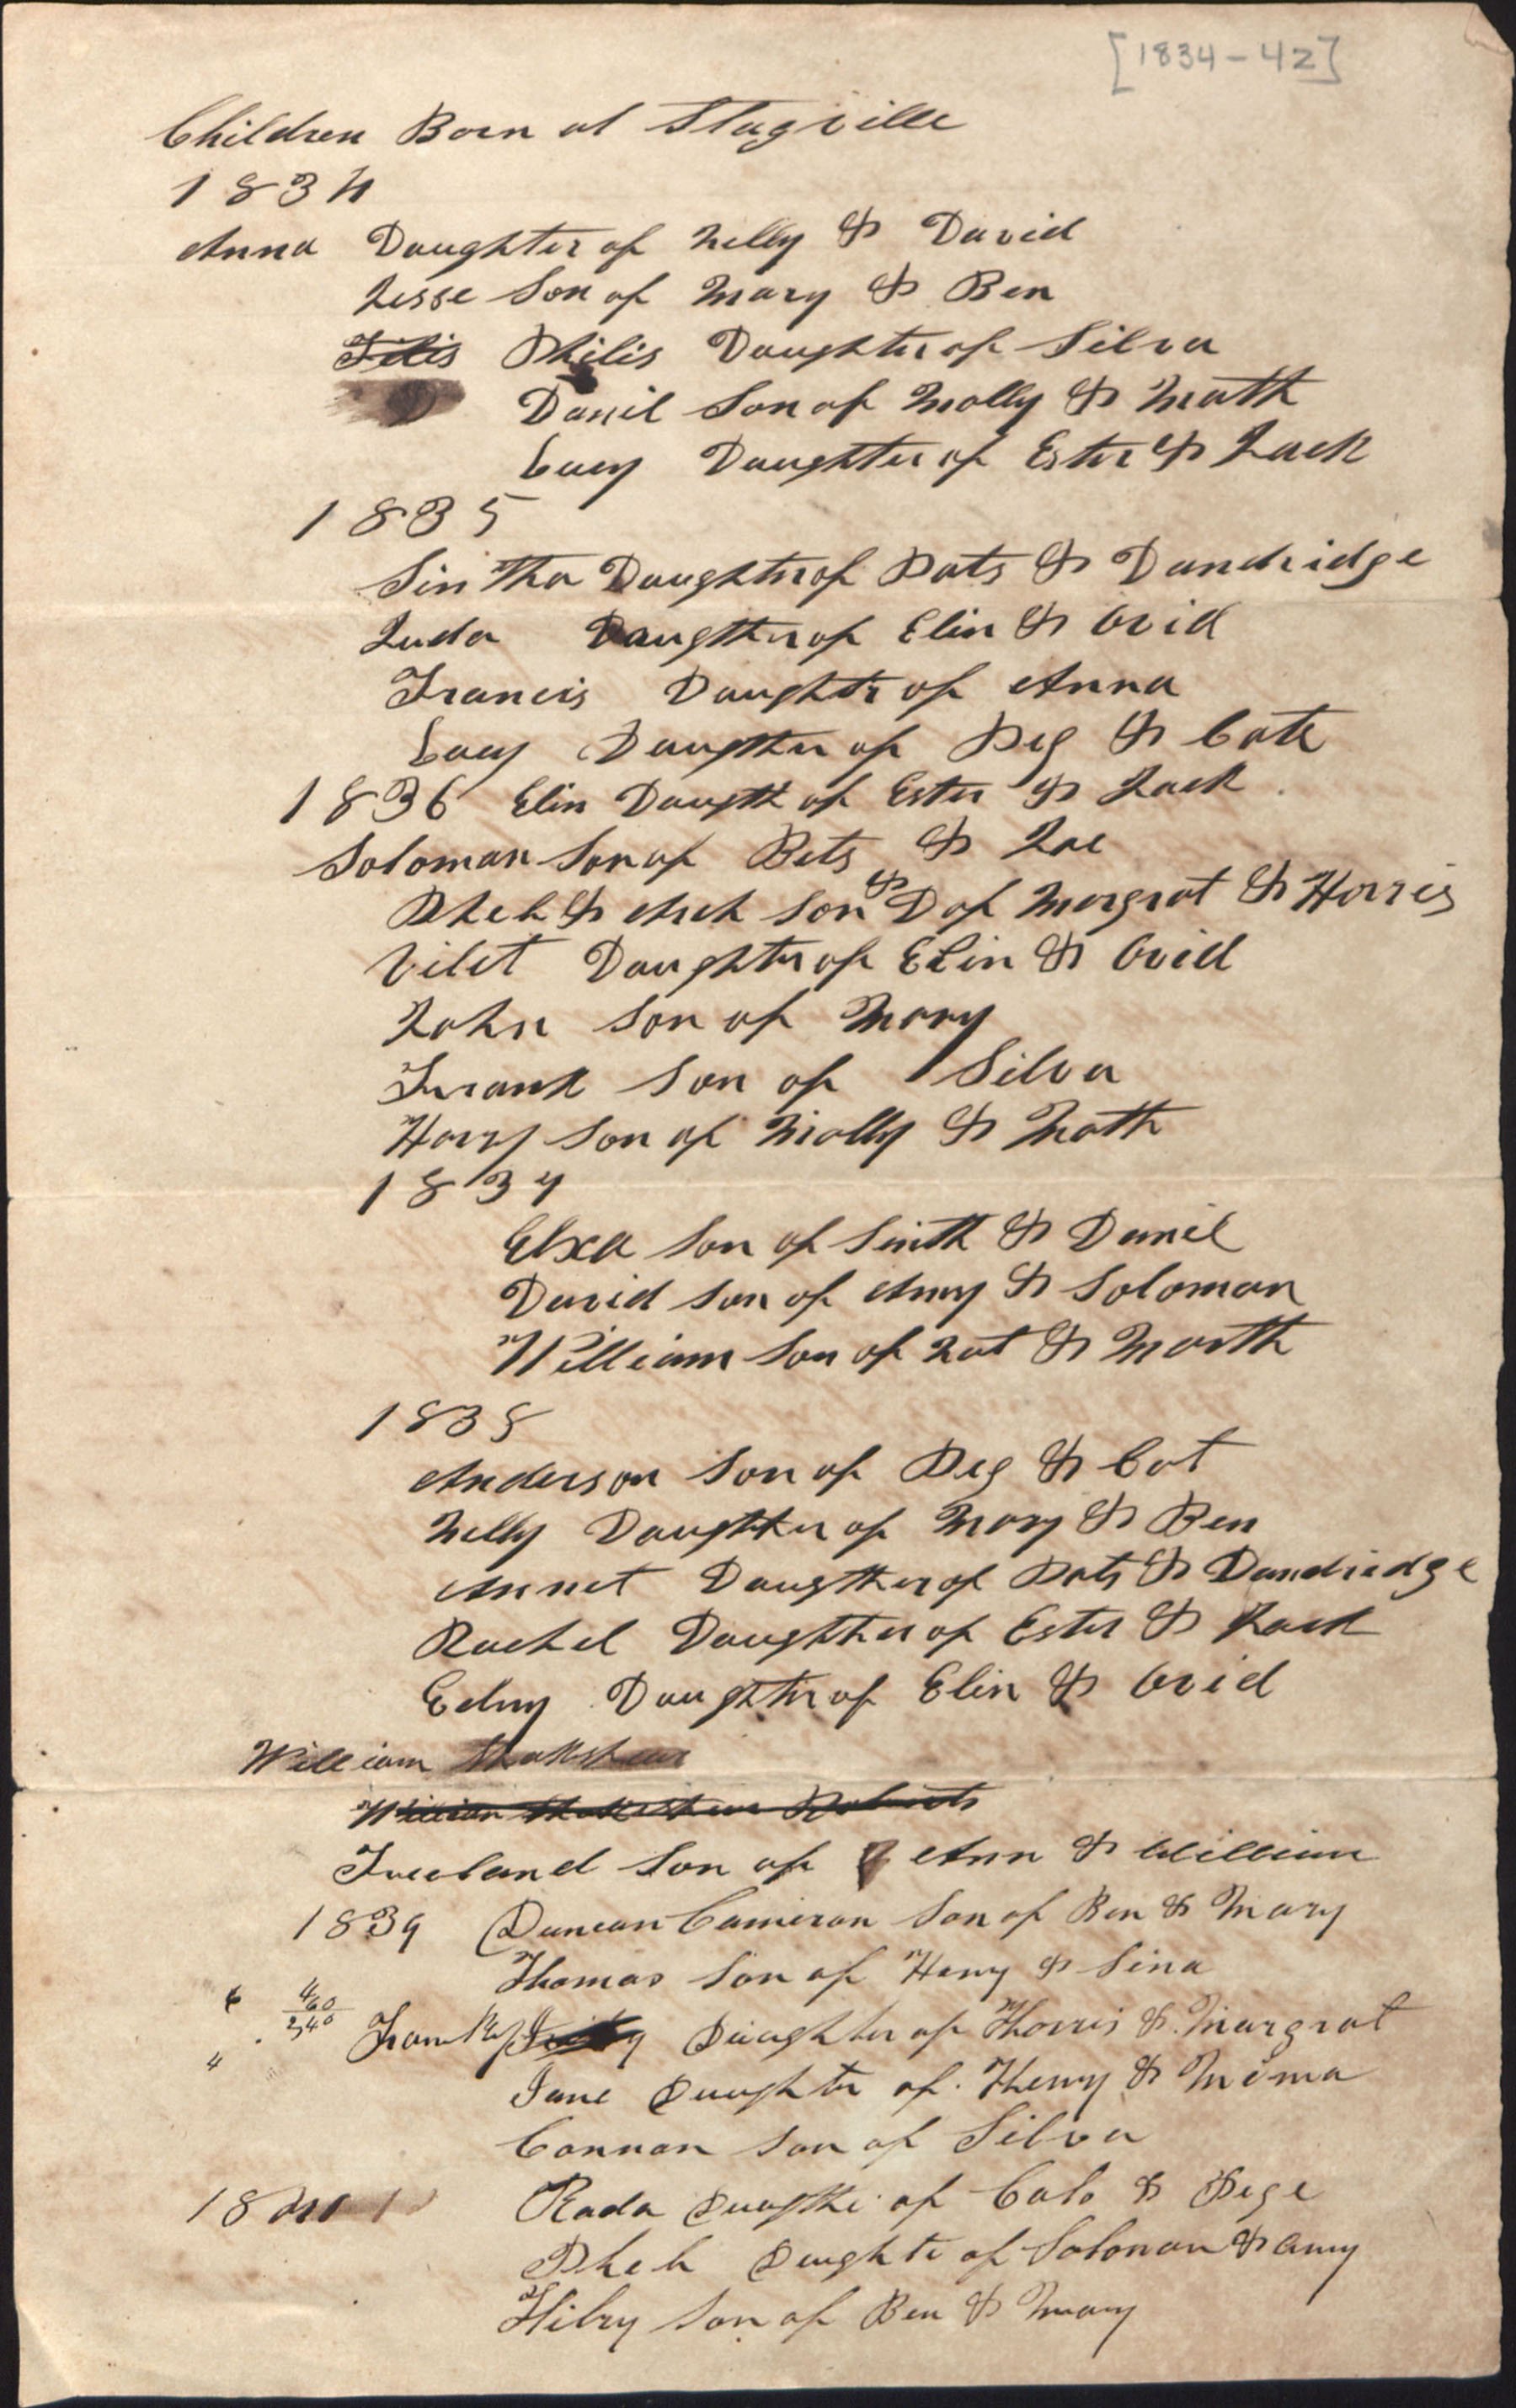 [1834-42]
Children Born at Stagville
1834
Anna Daughter of Nelly & David
Jesse Son of Mary & Ben
Filis Philis Daughter of Silva
Danil Son of Molly & Math
Lucy Daughter of Ester & Jack
1835
Sintha Daughter of Pats & Dandridge
Juda Daugther of Elin & Ovid
Francis Daughtr of Anna
Lucy Daugther of Peg & Cate
1836 Elin Daugth of Ester & Jack
Soloman Son of Bets & Joe
Pheb & Arch Son & D of Margrat & Horris
Vilet Daughter of Elin & Ovid
John Son of Mary
Frank Son of Silva
Harry Son of Molly & Math
1837
Son of Sinth & Danil
David Son of Amy & Soloman
William Son of Nat & Marth
1838
Anderson Son of Peg & Cat
Nelly Daughter of Mary & Ben
Annet Daugther of Pats & Dandridge
Rachel Daughther of Ester & Jack
Edny Daughter of Elin & Ovid
William
William
Freeland Son of Ann & William
1839 Duncan Cameron Son of Ben & Mary
Thomas Son of Hery & Sina
460
240
Daughter of Horris & Margrat
Jane Daughter of Henry & Mima
Cannon Son of Silva
1840 Rada Daugthe of Cato & Pege
Pheb Daughte of Soloman & Amy
Hilry Son of Ben & Mary